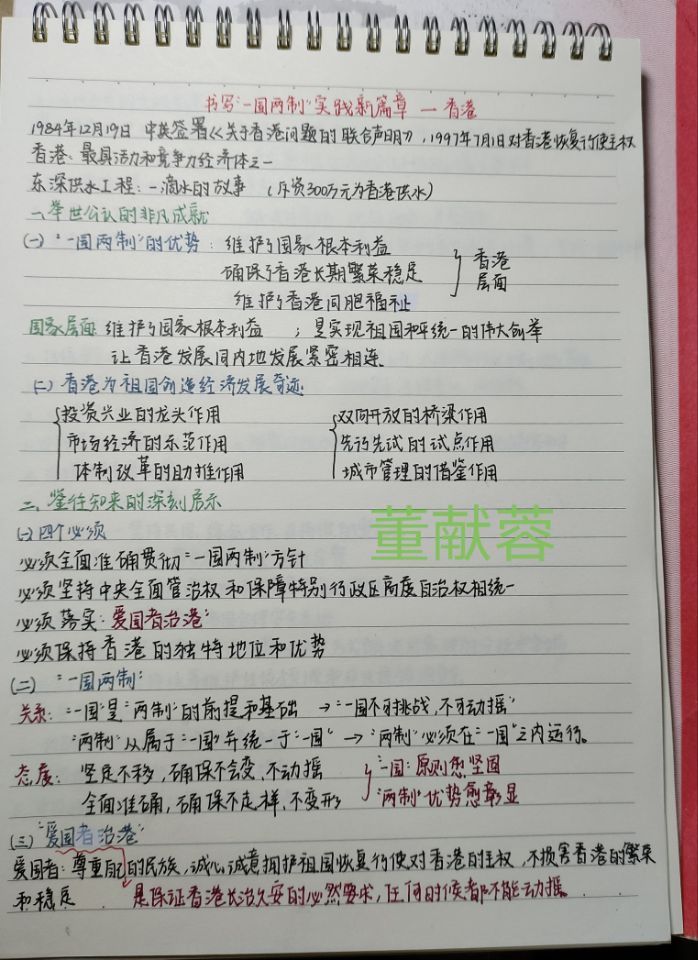 书写"一国两制"实践新篇章 — 香港
1984年12月19日 中英签署《关于香港问题的联合声明》,1997年7月1日对香港恢复行使主权
香港:最具活力和竞争力经济体之一
东深供水工程:一滴水的故事 (斥资300万元为香港供水)
一、举世公认的非凡成就
(一)"一国两制"的优势:维护了国家根本利益
确保了香港长期繁荣稳定
维护了香港同胞福祉
香港
层面
国家层面:维护了国家根本利益 ;是实现祖国和平统一的伟大创举
让香港发展同内地发展紧密相连.
(二)香港为祖国创造经济发展奇迹
投资兴业的龙头作用 双向开放的桥梁作用
市场经济的示范作用 先行先试的试点作用
体制改革的助推作用 城市管理的借鉴作用
二、鉴往知来的深刻启示
(一)四个必须
董献蓉
必须全面准确贯彻"一国两制"方针
必须坚持中央全面管治权和保障特别行政区高度自治权相统一
必须落实"爱国者治港"
必须保持香港的独特地位和优势
(二)"一国两制"
关系:"一国"是"两制"的前提和基础 →"一国不可挑战,不可动摇"
"两制"从属于"一国"并统一于"一国" →"两制"必须在"一国"之内运行。
态度:坚定不移,确保不会变、不动摇
全面准确,确保不走样、不变形
"一国"原则愈坚固
"两制"优势愈彰显
(三)"爱国者治港"
爱国者:尊重自己的民族,诚心诚意拥护祖国恢复行使对香港的主权,不损害香港的繁荣
和稳定 是保证香港长治久安的必然要求,任何时候都不能动摇.